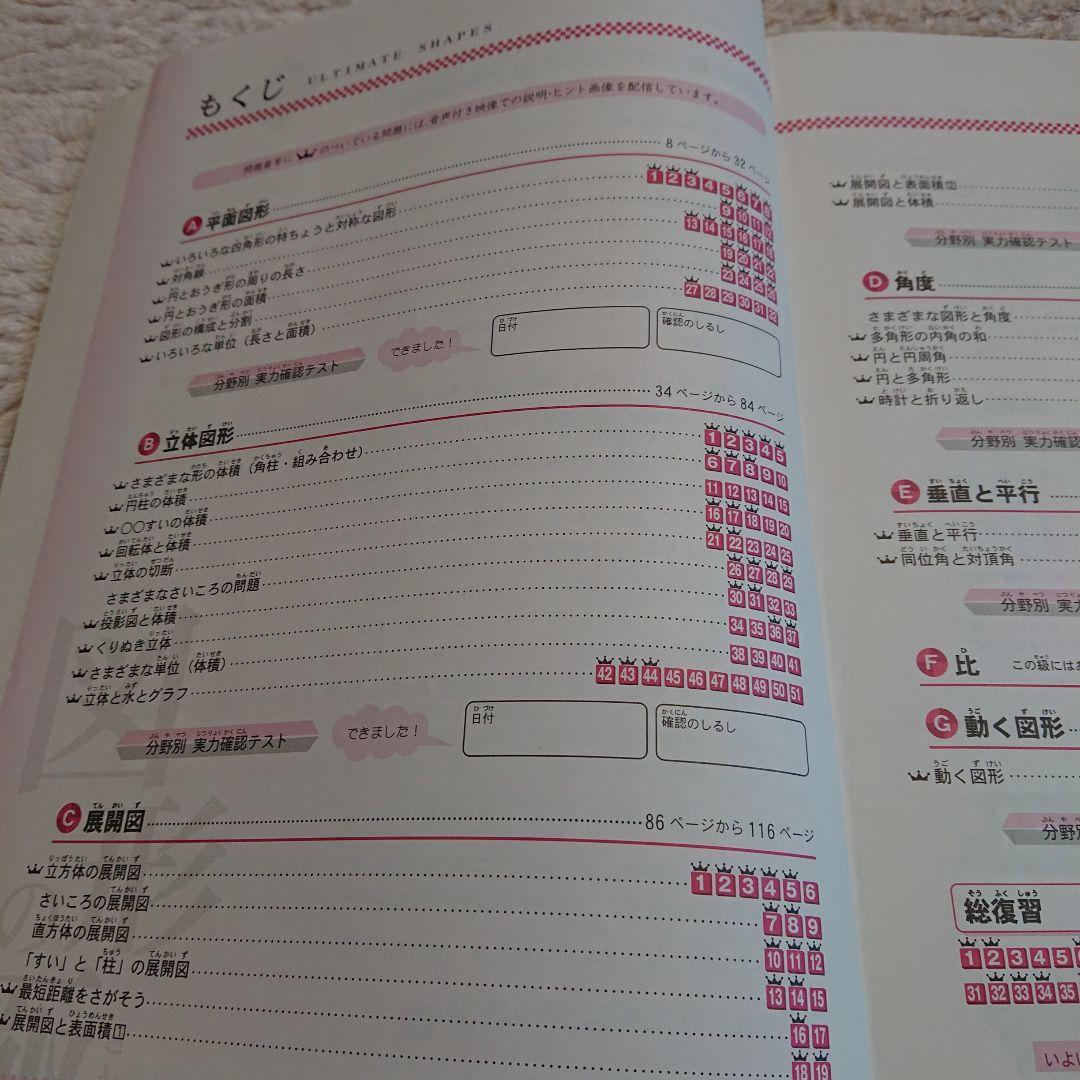 もくじ ULTIMATE SHAPES
問題番号に のついている問題には、音声付き映像での説明・ヒント画像を配信しています。
A 平面図形 8ページから32ページ
いろいろな四角形の特ちょうと対称な図形 1 2 3 4 5 6 7 8
対角線 9 10 11 12
円とおうぎ形の周りの長さ 13 14 15 16 17 18
円とおうぎ形の面積 19 20 21 22
図形の構成と分割 23 24 25 26
いろいろな単位（長さと面積） 27 28 29 30 31 32
分野別 実力確認テスト できました！ 日付 確認のしるし
B 立体図形 34ページから84ページ
さまざまな形の体積（角柱・組み合わせ） 1 2 3 4 5
円柱の体積 6 7 8 9 10
〇〇すいの体積 11 12 13 14 15
回転体と体積 16 17 18 19 20
立体の切断 21 22 23 24 25
さまざまなさいころの問題 26 27 28 29
投影図と体積 30 31 32 33
くりぬき立体 34 35 36 37
さまざまな単位（体積） 38 39 40 41
立体と水とグラフ 42 43 44 45 46 47 48 49 50 51
分野別 実力確認テスト できました！ 日付 確認のしるし
C 展開図 86ページから116ページ
立方体の展開図 1 2 3 4 5 6
さいころの展開図 7 8 9
直方体の展開図 10 11 12
「すい」と「柱」の展開図 13 14 15
最短距離をさがそう 16 17
展開図と表面積1 18 19
展開図と表面積2
展開図と体積
分野別 実力確認テスト
D 角度
さまざまな図形と角度
多角形の内角の和
円と円周角
円と多角形
時計と折り返し
分野別 実力確認
E 垂直と平行
垂直と平行
同位角と対頂角
分野別 実力確認
F 比 この級にはお
G 動く図形
動く図形
分野別
総復習
1 2 3 4 5
31 32 33 34 35
いよい